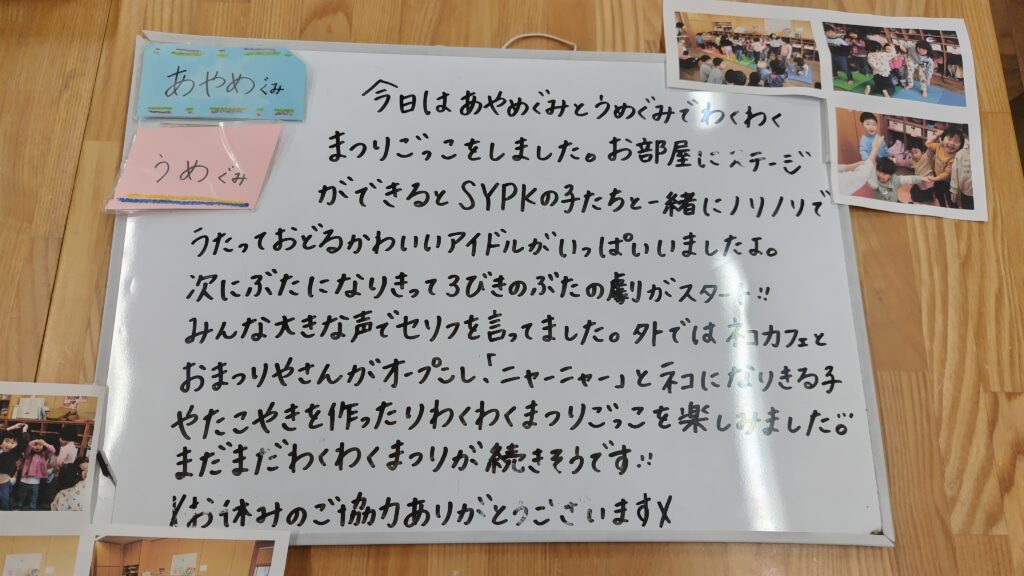 あやめぐみ
うめぐみ
今日はあやめぐみとうめぐみでわくわく
まつりごっこをしました。お部屋にステージ
ができるとSYPKの子たちと一緒にノリノリで
うたっておどるかわいいアイドルがいっぱいいましたよ。
次にぶたになりきって3びきのぶたの劇がスタート!!
みんな大きな声でセリフを言ってました。外ではネコカフェと
おまつりやさんがオープンし、「ニャーニャー」とネコになりきる子
やたこやきを作ったりわくわくまつりごっこを楽しみました。
まだまだわくわくまつりが続きそうです!!
お休みのご協力ありがとうございます